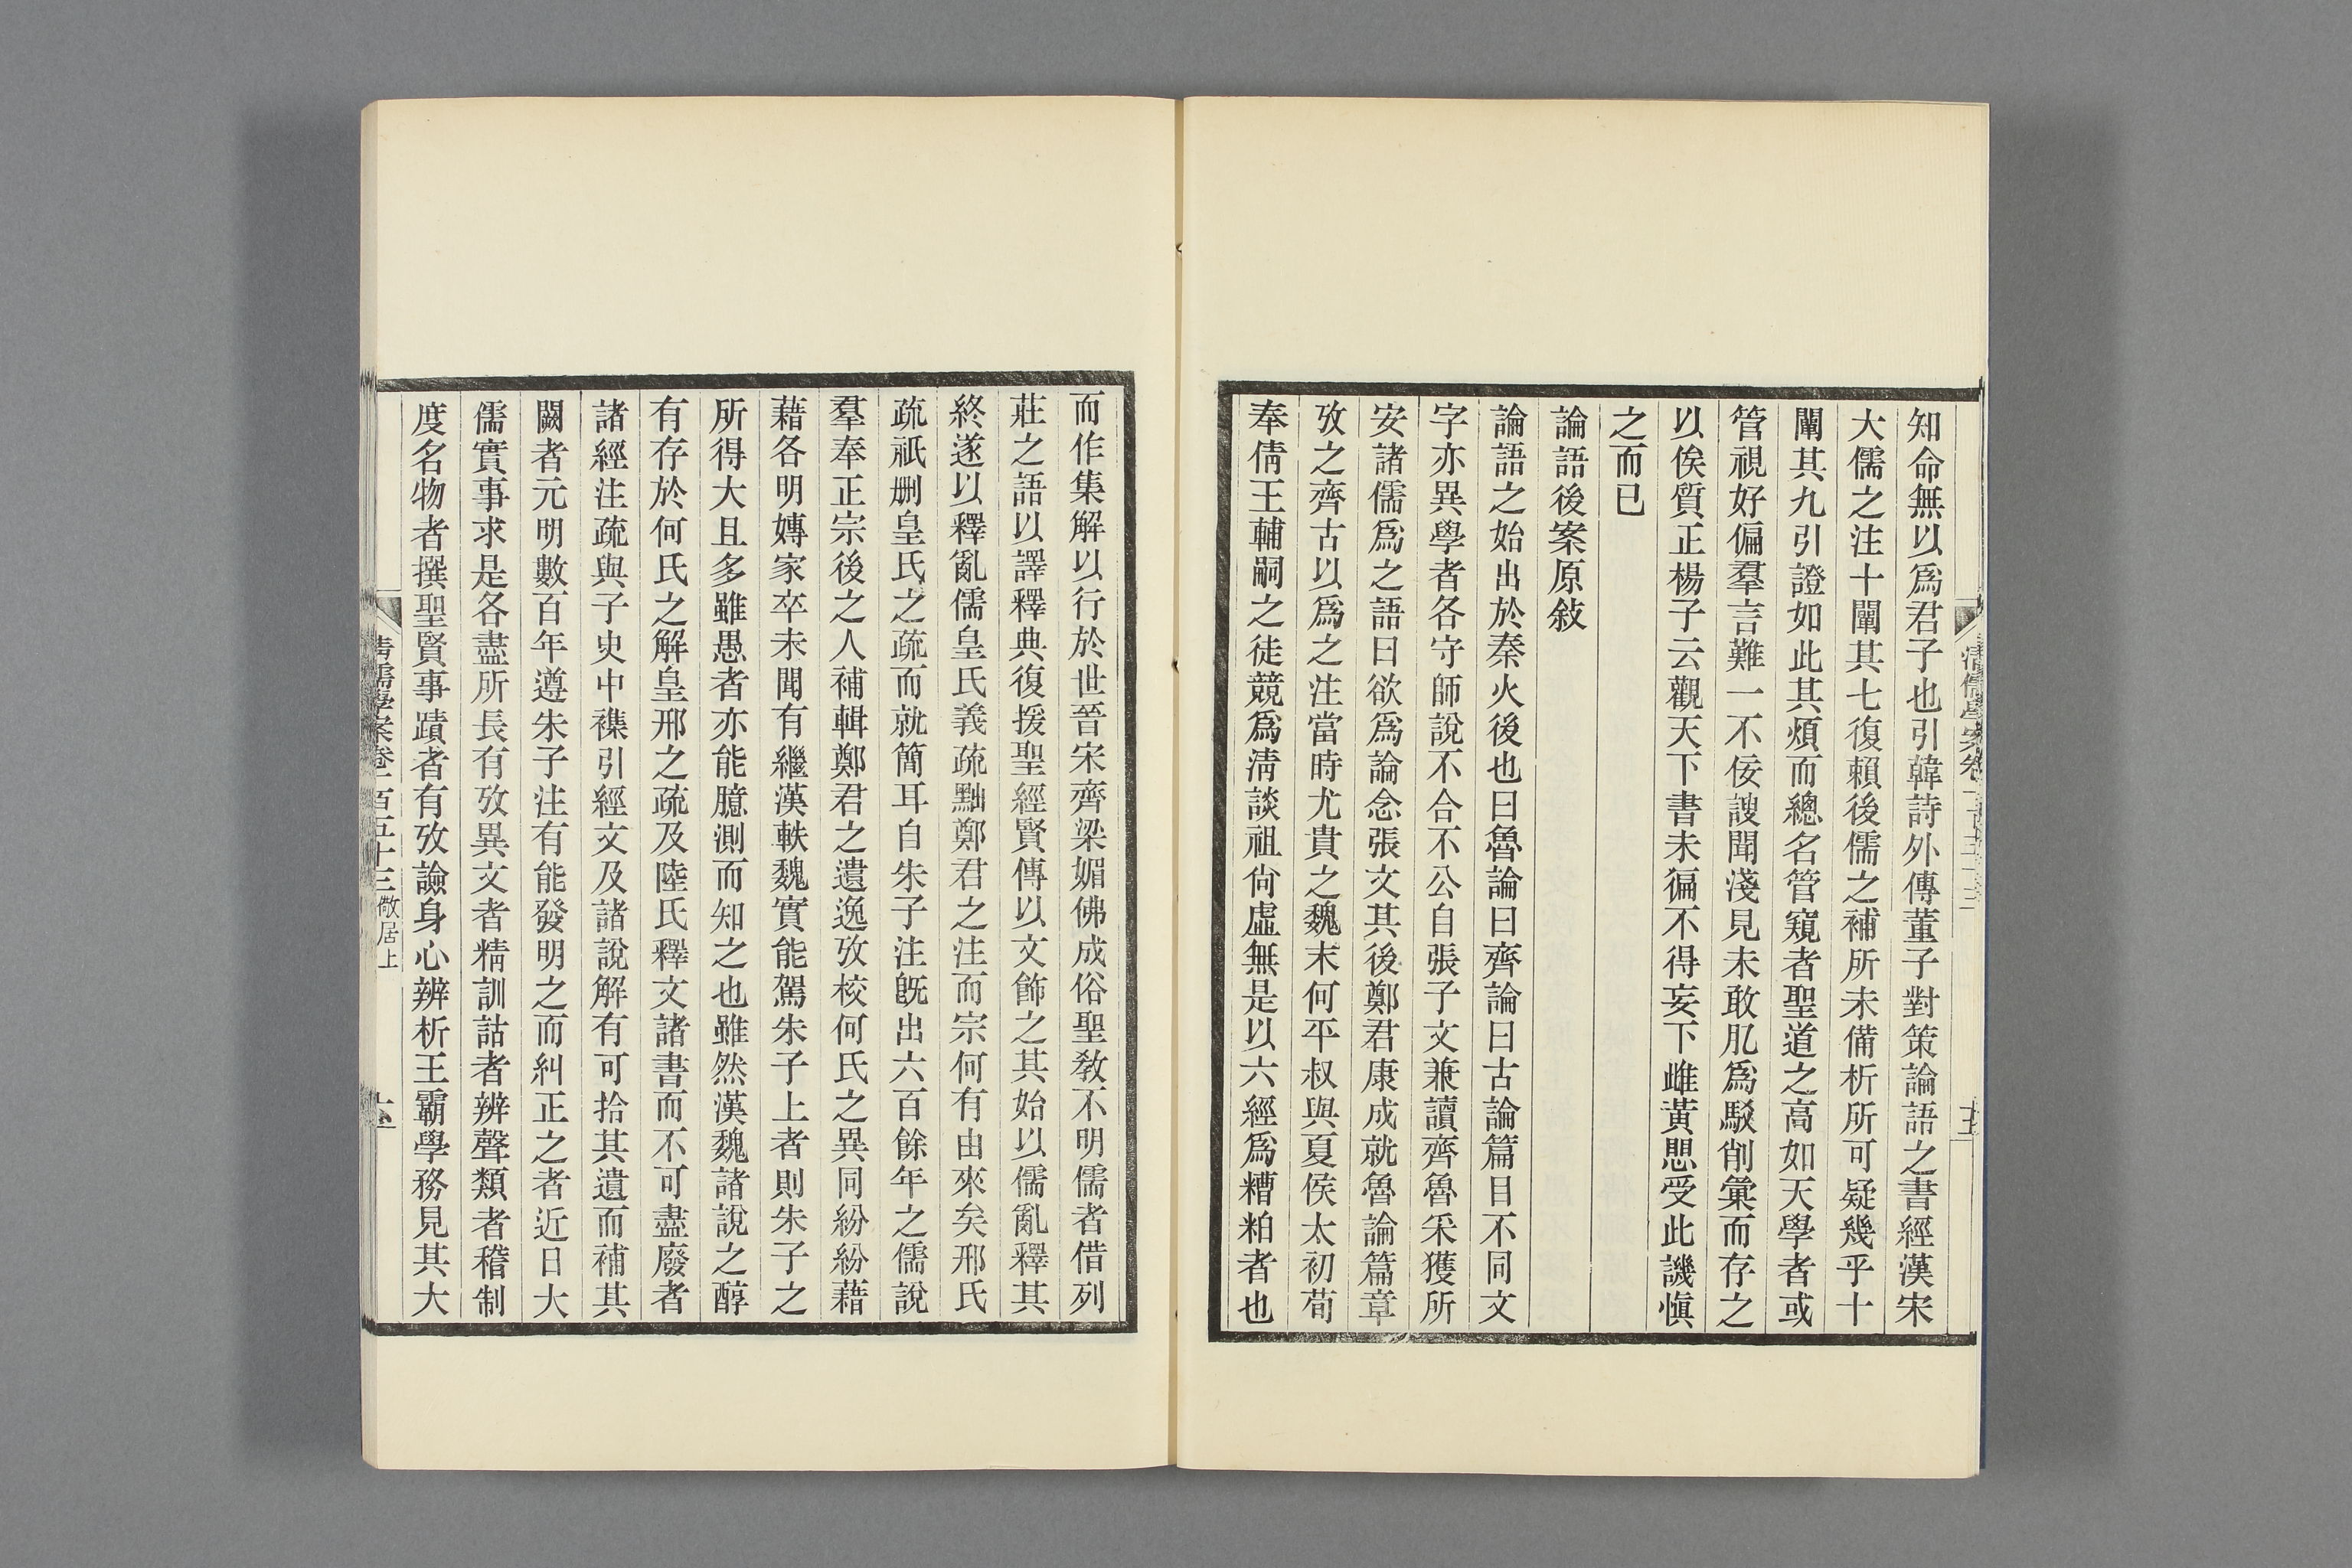 知命無以爲君子也引韓詩外傳董子對策論語之書經漢宋
大儒之注十闡其七復賴後儒之補所未備析所可疑幾乎十
闡其九引證如此其煩而總名管窺者聖道之高如天學者或
管視好偏羣言難一不佞謏聞淺見未敢肊爲駁削彙而存之
以俟質正楊子云觀天下書未徧不得妄下雌黃愳受此譏愼
之而已
論語後案原敍
論語之始出於秦火後也曰魯論曰齊論曰古論篇目不同文
字亦異學者各守師說不合不公自張子文兼讀齊魯采獲所
安諸儒爲之語曰欲爲論念張文其後鄭君康成就魯論篇章
攷之齊古以爲之注當時尤貴之魏末何平叔與夏侯太初荀
奉倩王輔嗣之徒競爲淸談祖尙虛無是以六經爲糟粕者也
而作集解以行於世晉宋齊梁媚佛成俗聖敎不明儒者借列
莊之語以譯釋典復援聖經賢傳以文飾之其始以儒亂釋其
終遂以釋亂儒皇氏義疏黜鄭君之注而宗何有由來矣邢氏
疏祇刪皇氏之疏而就簡耳自朱子注旣出六百餘年之儒說
羣奉正宗後之人補輯鄭君之遺逸攷校何氏之異同紛紛藉
藉各明嫥家卒未聞有繼漢軼魏實能駕朱子上者則朱子之
所得大且多雖愚者亦能臆測而知之也雖然漢魏諸說之醇
有存於何氏之解皇邢之疏及陸氏釋文諸書而不可盡廢者
諸經注疏與子史中襍引經文及諸說解有可拾其遺而補其
闕者元明數百年遵朱子注有能發明之而糾正之者近日大
儒實事求是各盡所長有攷異文者精訓詁者辨聲類者稽制
度名物者撰聖賢事蹟者有攷譣身心辨析王霸學務見其大
淸儒學案卷一百五十三 儆居上